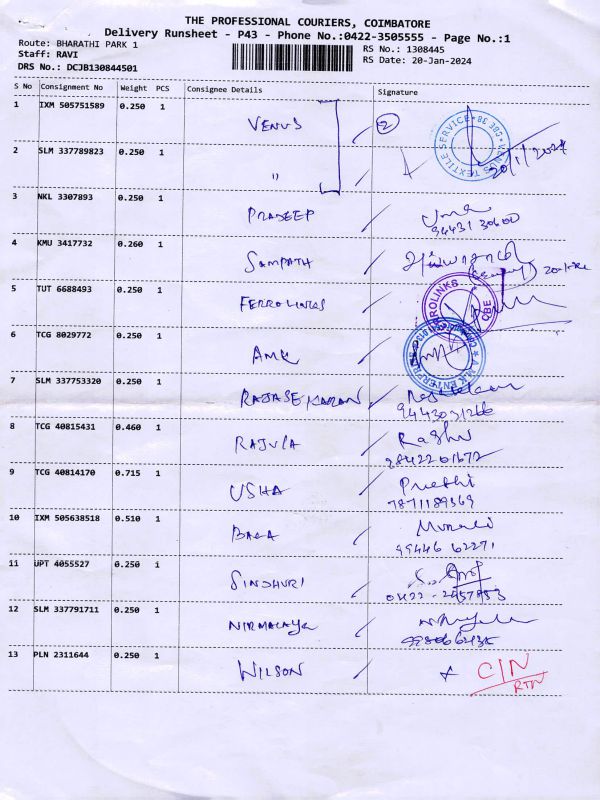 THE PROFESSIONAL COURIERS, COIMBATORE
Delivery Runsheet - P43 - Phone No.:0422-3505555 - Page No.:1
Route: BHARATHI PARK 1
RS No.: 1308445
Staff: RAVI
RS Date: 20-Jan-2024
DRS No.: DCJB130844501
S No Consignment No Weight PCS Consignee Details Signature
1 IXM 505751589 0.250 1 VENUS 2
VENUS TEXTILE SERVICE CBE 38
20/1/2024
2 SLM 337789823 0.250 1 "
3 NKL 3307893 0.250 1 PRADEEP
94431 30600
4 KMU 3417732 0.260 1 SAMPATH
5 TUT 6688493 0.250 1 FERROLINKS
FERROLINKS CBE
6 TCG 8029772 0.250 1 AMK
7 SLM 337753320 0.250 1 RAJASEKARAN
9443031266
8 TCG 40815431 0.460 1 RAJULA Raghu
9842201672
9 TCG 40814170 0.715 1 USHA Preethi
7871189369
10 IXM 505638518 0.510 1 BALA Murali
99446 62271
11 UPT 4055527 0.250 1 SINDHURI
0422 - 2457853
12 SLM 337791711 0.250 1 NIRMALAYA
13 PLN 2311644 0.250 1 WILSON C/N
RTN